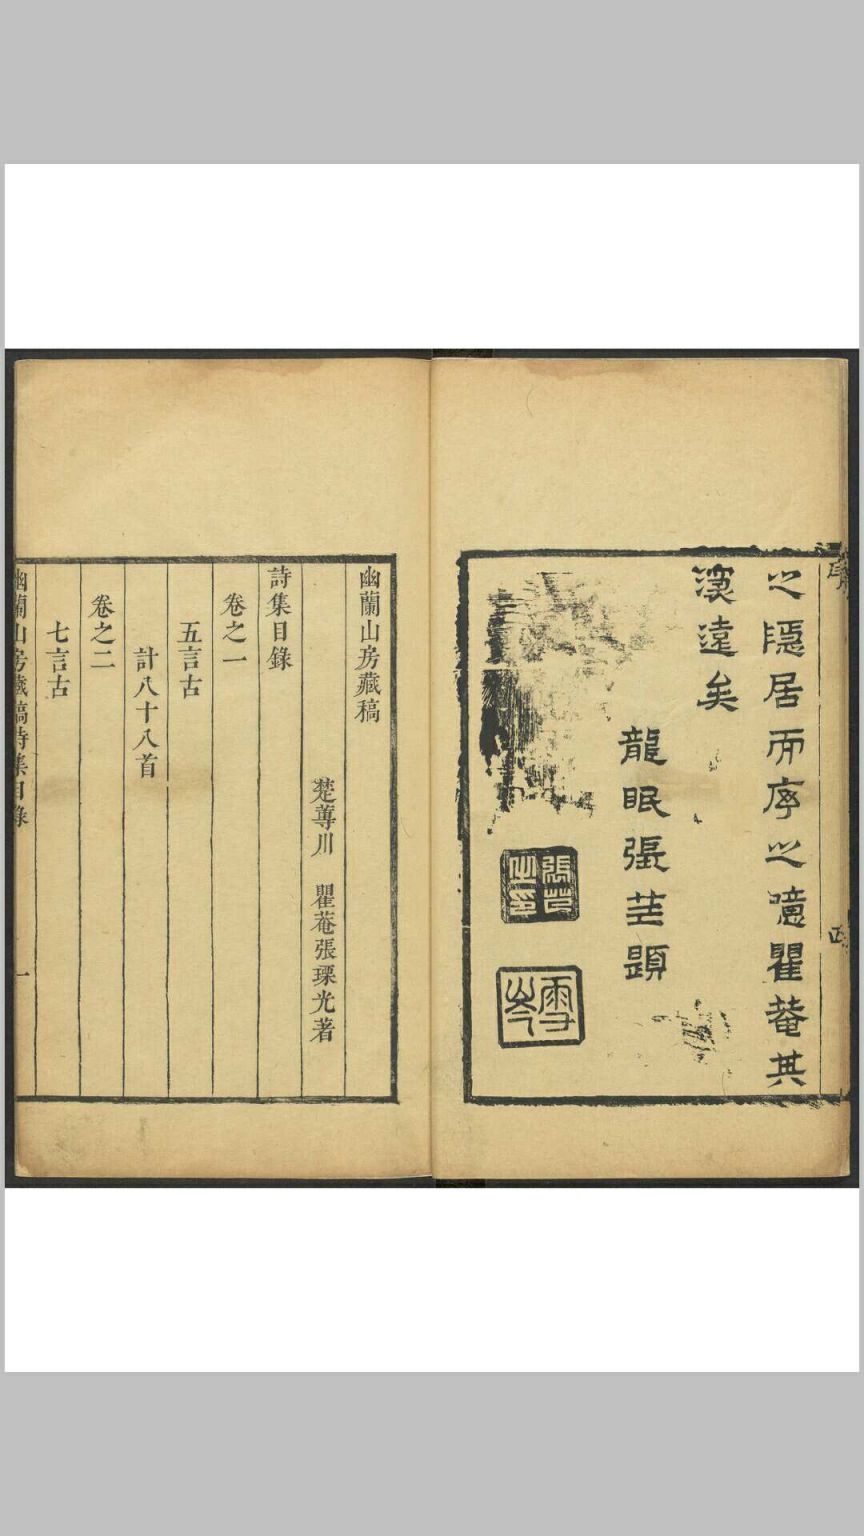 之隱居而序之噫瞿菴其
深遠矣
龍眠張茝題
雪岑
幽蘭山房藏稿
楚蓴川 瞿菴張瑮光著
詩集目錄
卷之一
五言古
計八十八首
卷之二
七言古
幽蘭山房藏稿詩集目錄 一